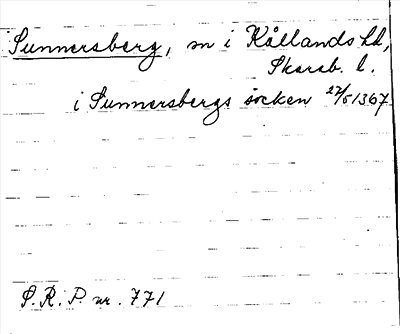 Sunnersberg, sn i Kållands hd,
Skarab. l.
i Sunnersbergs socken 27/5 1367
S. R. P. nr. 771